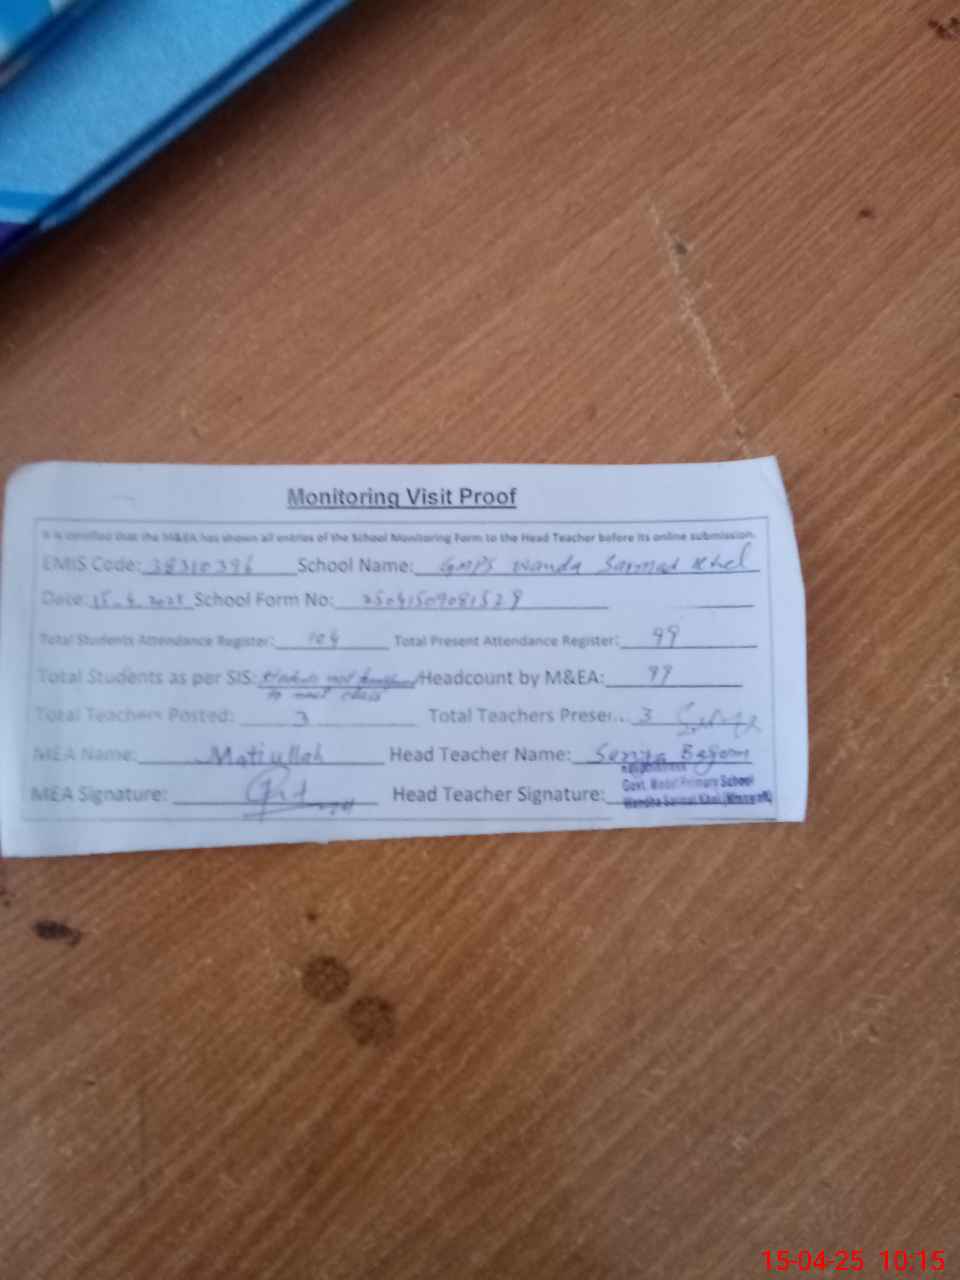 Monitoring Visit Proof
It is certified that the M&EA has shown all entries of the School Monitoring Form to the Head Teacher before its online submission.
EMIS Code: 38310396 School Name: GMPS Wanda Sarmad Khel
Date: 15.4.2025 School Form No: 25041509081529
Total Students Attendance Register: 104 Total Present Attendance Register: 99
Total Students as per SIS: Students not /Headcount by M&EA: 99
to next class
Total Teachers Posted: 3 Total Teachers Presen... 3
MEA Name: Matiullah Head Teacher Name: Begom
MEA Signature: Head Teacher Signature:
Govt. Model Primary School
15-04-25 10:15